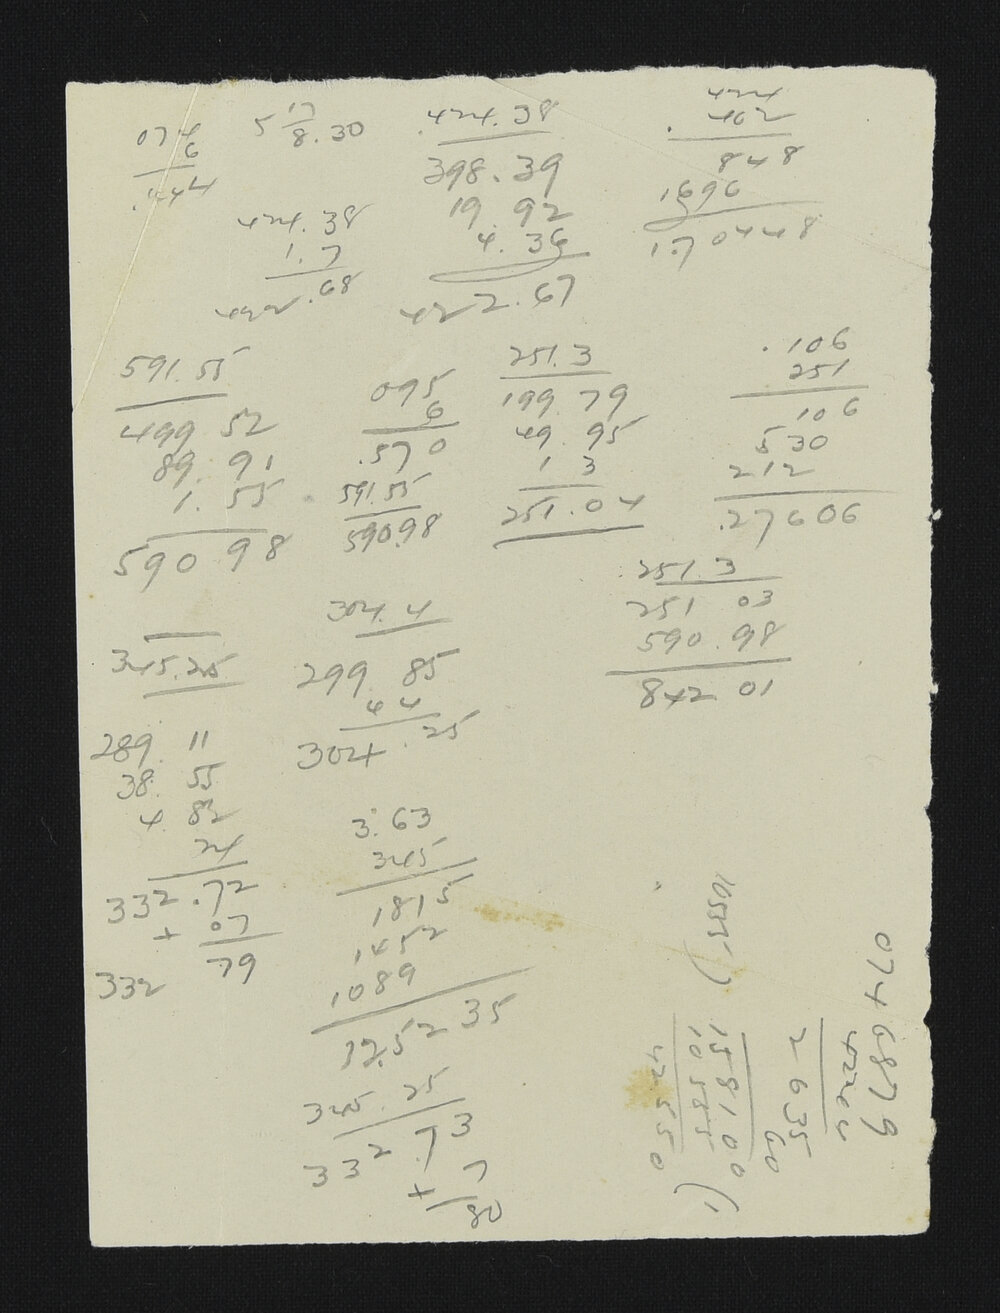 074
6
.444
5 17/8.30
424.38
1.7
422.68
424.38
398.39
19.92
4.36
422.67
424
.402
848
1696
1.70448
591.55
499 52
89.91
1.55
590 98
095
6
.570
591.55
590.98
251.3
199 79
49.95
1 3
251.04
.106
251
106
530
212
.27606
251.3
251 03
590.98
842 01
345.25
304.4
299 85
44
304.25
289 11
38.55
4.82
24
332.72
+ 07
332 79
3.63
345
1815
1452
1089
12.5235
345.25
332.73
+ 7
80
10555)
15810 0 (1
10 555
42550
2 635
60
0746879